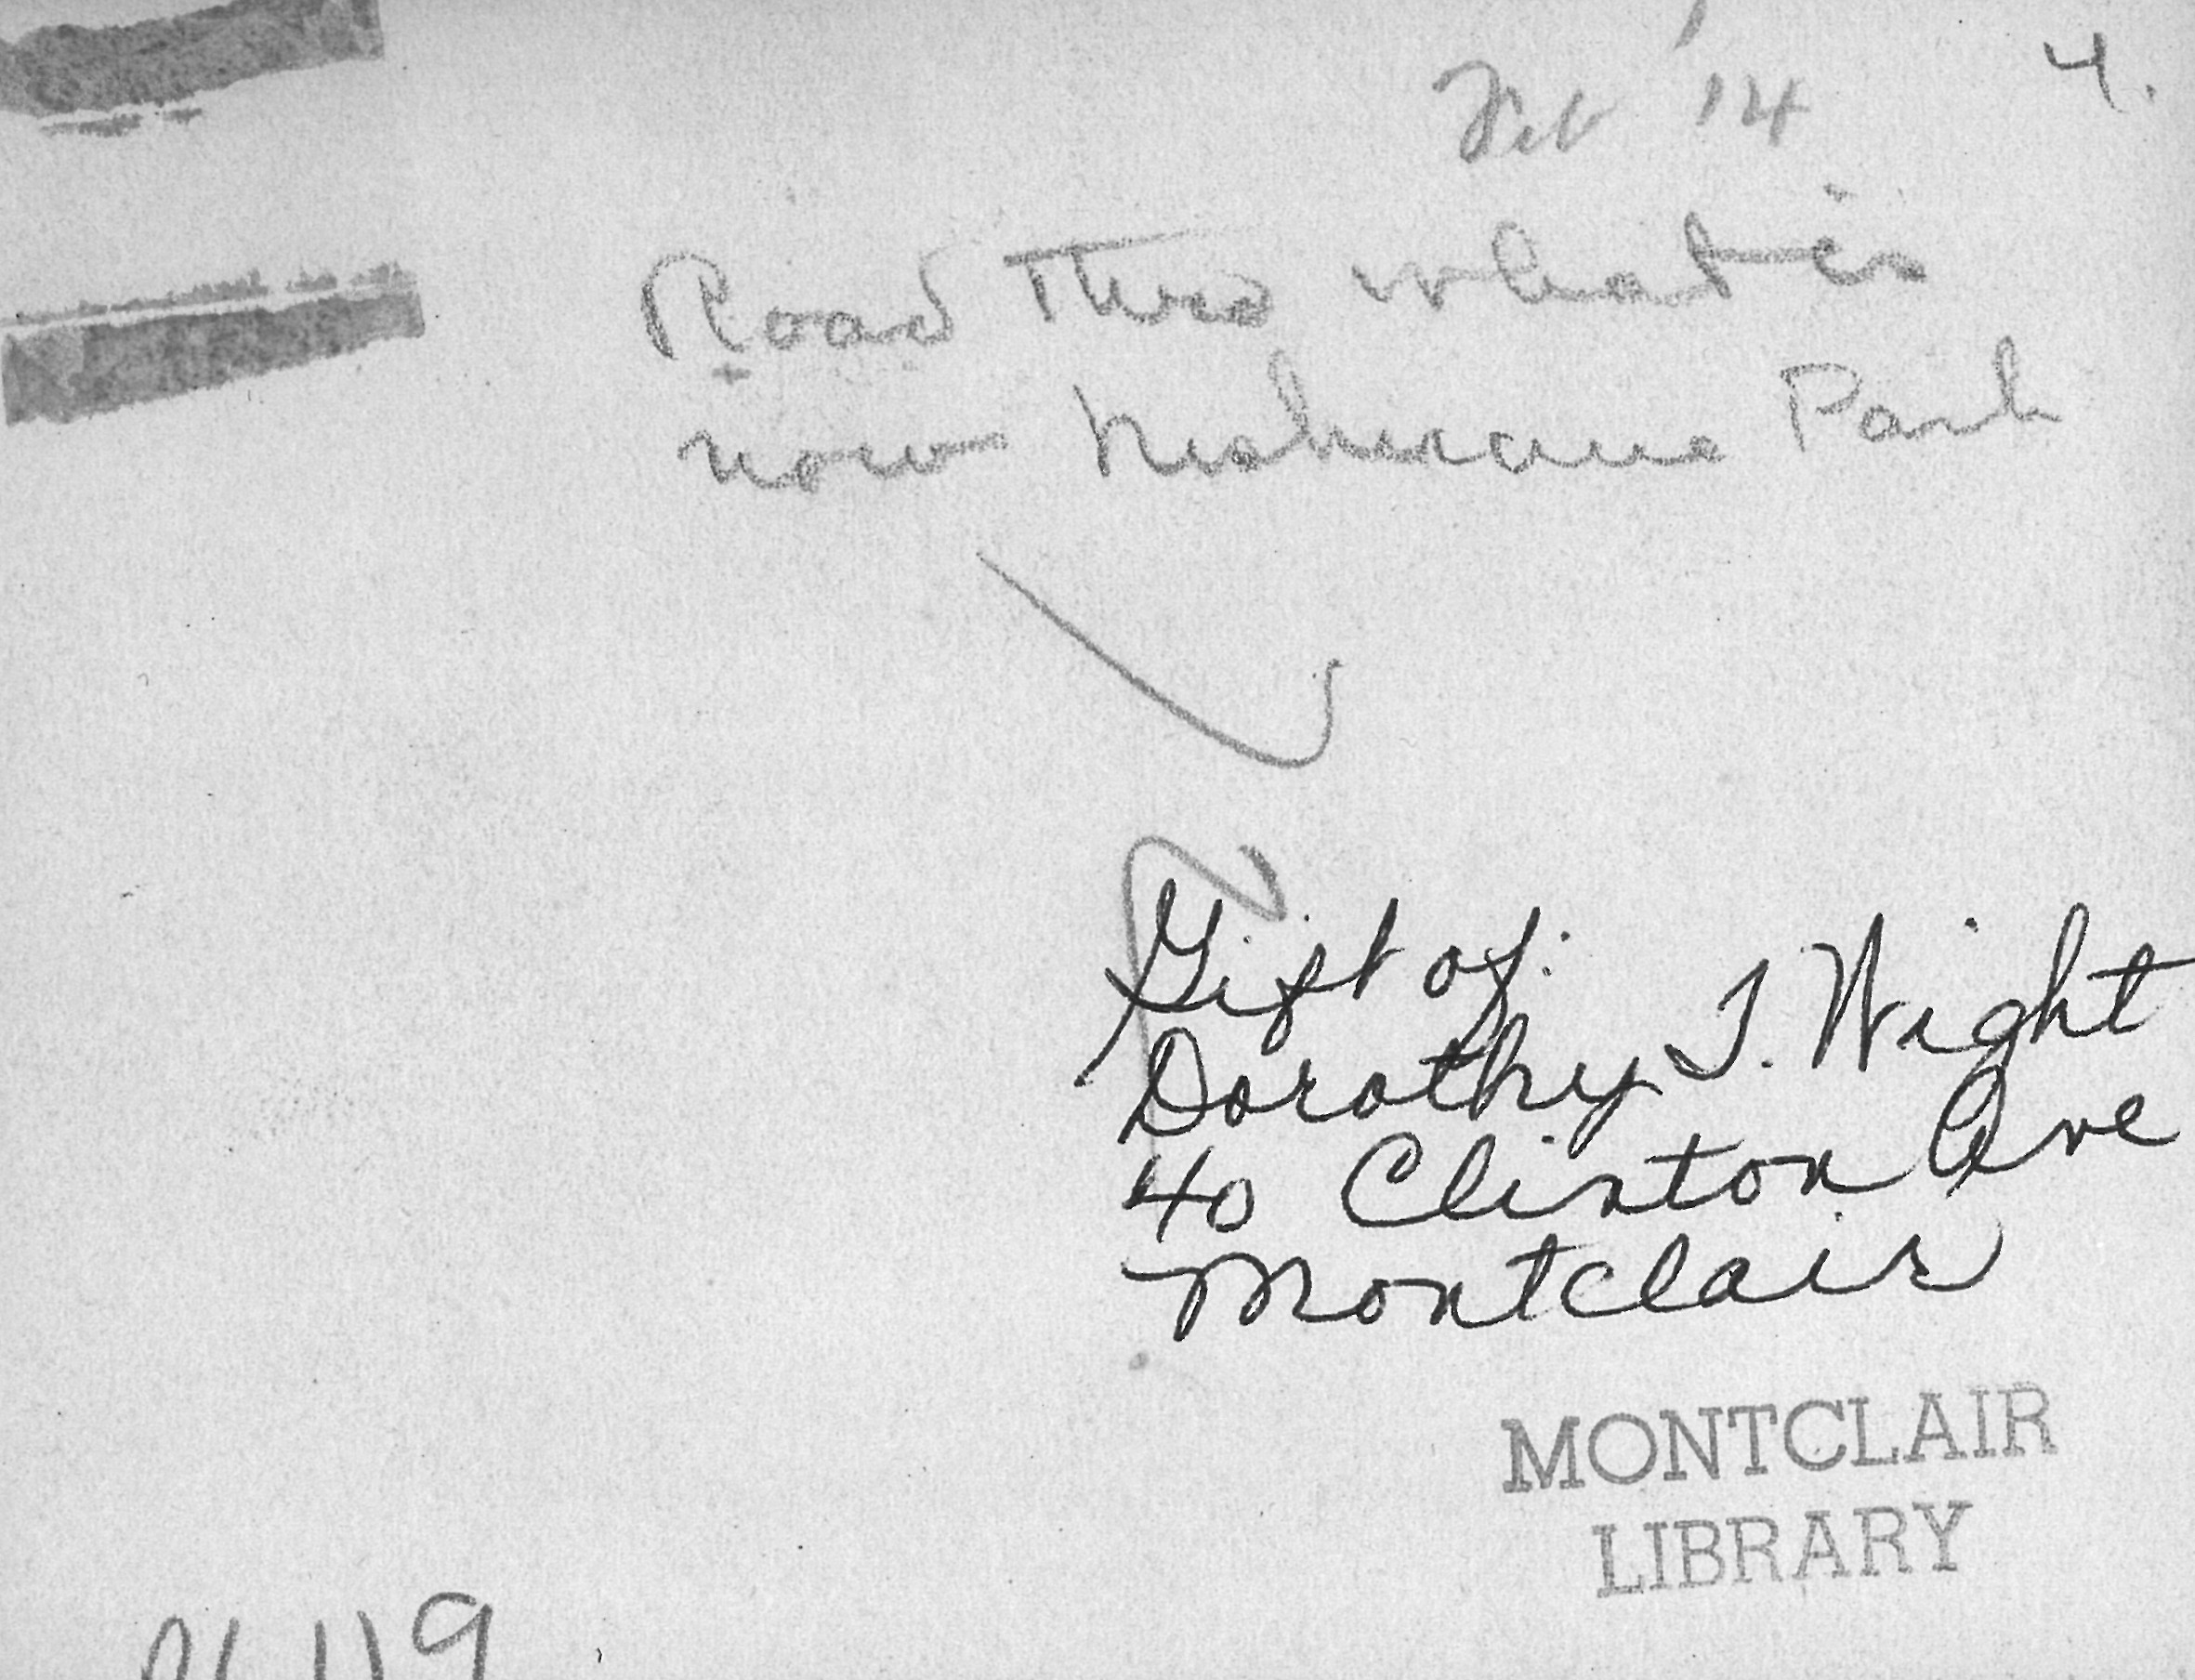 4.
Feb '14
Road thro what is
now Nishuane Park
Gift of:
Dorothy T. Wight
40 Clinton Ave
Montclair
MONTCLAIR
LIBRARY